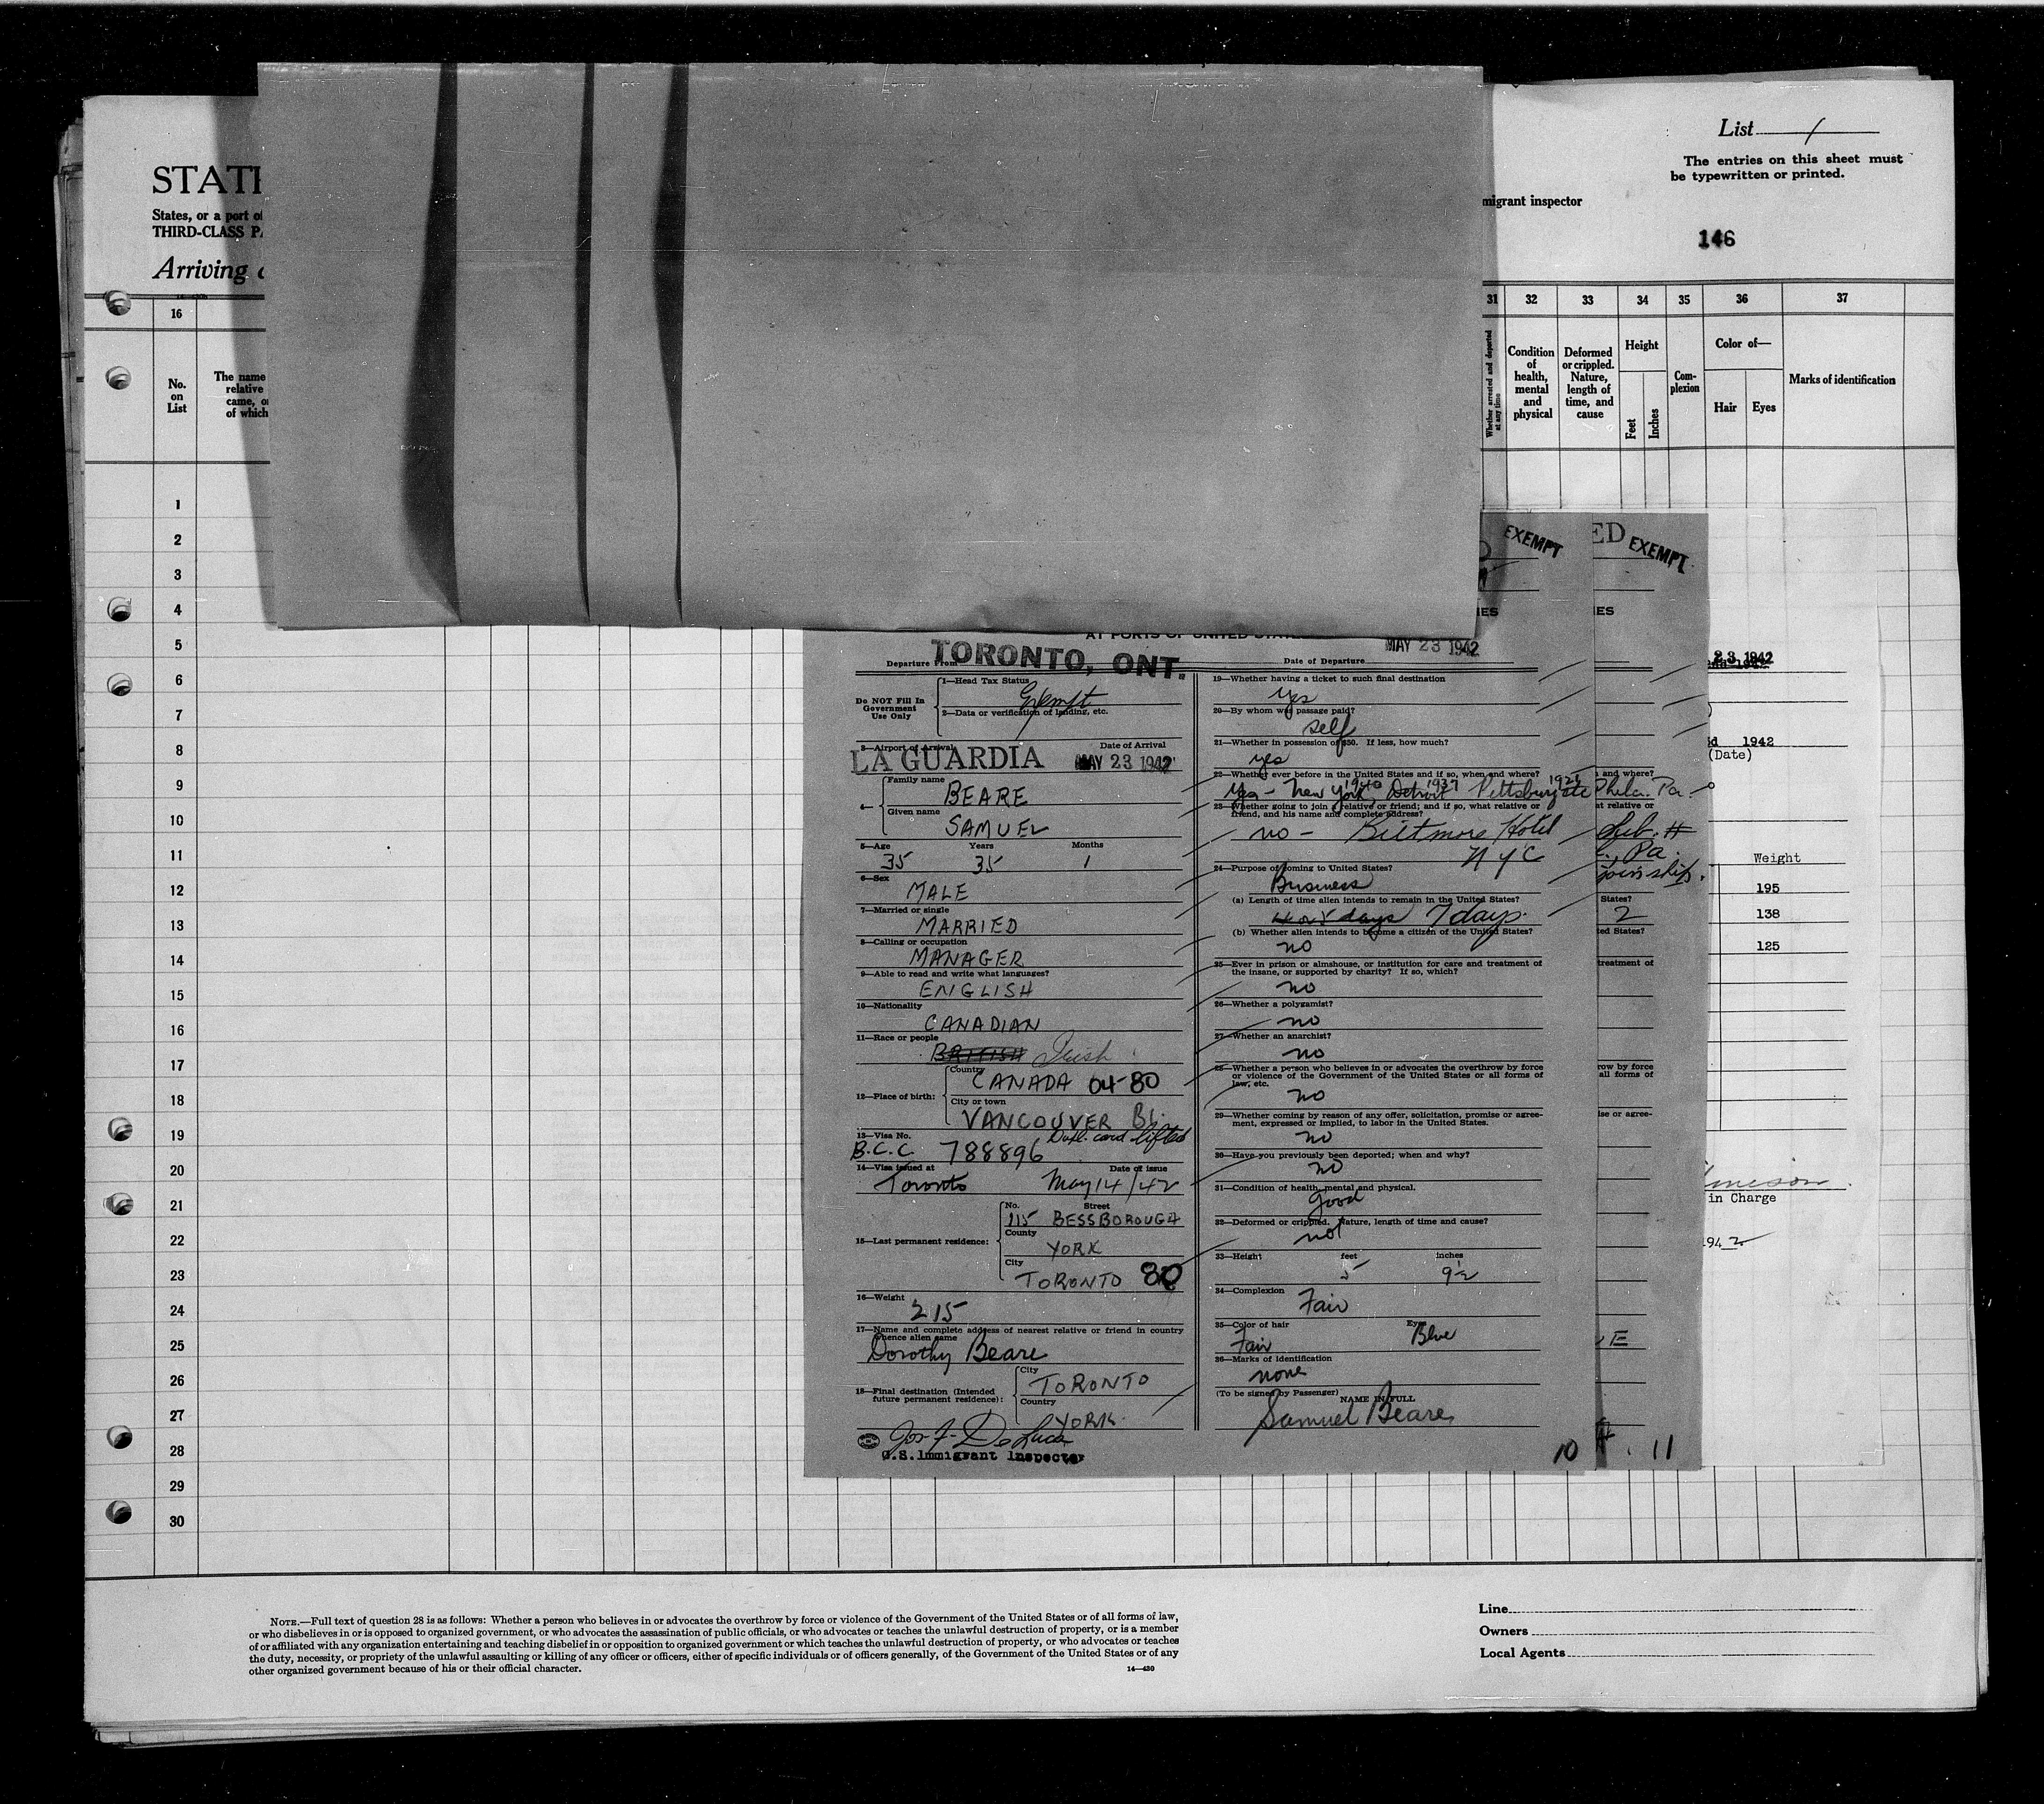 List 1
The entries on this sheet must
be typewritten or printed.
STATE
States, or a port of
THIRD-CLASS PA
migrant inspector
146
Arriving a
16
31 32 33 34 35 36 37
No. on List
The name
relative
came, or
of which
Whether arrested and deported at any time
Condition of health, mental and physical
Deformed or crippled. Nature, length of time, and cause
Height
Feet
Inches
Com-plexion
Color of—
Hair
Eyes
Marks of identification
1
2
3
4
5
6
7
8
9
10
11
12
13
14
15
16
17
18
19
20
21
22
23
24
25
26
27
28
29
30
EXEMPT
ED EXEMPT
IES
IES
AT PORTS OF UNITED STATES
Departure From TORONTO, ONT.
Date of Departure MAY 23 1942
Do NOT Fill In
Government
Use Only
1—Head Tax Status
Exempt
2—Data or verification of landing, etc.
3—Airport of Arrival Date of Arrival
LA GUARDIA MAY 23 1942
4—
Family name
BEARE
Given name
SAMUEL
5—Age Years Months
35 35 1
6—Sex
MALE
7—Married or single
MARRIED
8—Calling or occupation
MANAGER
9—Able to read and write what languages?
ENGLISH
10—Nationality
CANADIAN
11—Race or people
BRITISH Irish
12—Place of birth:
Country
CANADA 04-80
City or town
VANCOUVER B.C.
13—Visa No. Dupl. card lifted
B.C.C. 788896
14—Visa issued at Date of issue
Toronto May 14/42
15—Last permanent residence:
No. Street
115 BESSBOROUGH
County
YORK
City
TORONTO 80
16—Weight
215
17—Name and complete address of nearest relative or friend in country
whence alien came
Dorothy Beare
18—Final destination (Intended
future permanent residence):
City
TORONTO
Country
YORK.
Jos. F. De Luca
U.S. Immigrant Inspector
19—Whether having a ticket to such final destination
yes
20—By whom was passage paid?
self
21—Whether in possession of $50. If less, how much?
yes
22—Whether ever before in the United States and if so, when and where?
Yes - New York 1940 Detroit 1937 Pittsburg 1921 etc
23—Whether going to join a relative or friend; and if so, what relative or
friend, and his name and complete address?
no - Biltmore Hotel
NYC
24—Purpose of coming to United States?
Business
(a) Length of time alien intends to remain in the United States?
4 or 5 days 7 days.
(b) Whether alien intends to become a citizen of the United States?
no
25—Ever in prison or almshouse, or institution for care and treatment of
the insane, or supported by charity? If so, which?
no
26—Whether a polygamist?
no
27—Whether an anarchist?
no
28—Whether a person who believes in or advocates the overthrow by force
or violence of the Government of the United States or all forms of
law, etc.
no
29—Whether coming by reason of any offer, solicitation, promise or agree-
ment, expressed or implied, to labor in the United States.
no
30—Have you previously been deported; when and why?
no
31—Condition of health, mental and physical.
good
32—Deformed or crippled. Nature, length of time and cause?
not
33—Height feet inches
5 9½
34—Complexion
Fair
35—Color of hair Eyes
Fair Blue
36—Marks of identification
none
(To be signed by Passenger) NAME IN FULL
Samuel Beare
10
and where?
Phila. Pa.
at relative or
Pa.
join ship.
States?
2
ted States?
treatment of
row by force
all forms of
ise or agree-
E
11
23 1942
1942
(Date)
Weight
195
138
125
in Charge
1942
NOTE.—Full text of question 28 is as follows: Whether a person who believes in or advocates the overthrow by force or violence of the Government of the United States or of all forms of law,
or who disbelieves in or is opposed to organized government, or who advocates the assassination of public officials, or who advocates or teaches the unlawful destruction of property, or is a member
of or affiliated with any organization entertaining and teaching disbelief in or opposition to organized government or which teaches the unlawful destruction of property, or who advocates or teaches
the duty, necessity, or propriety of the unlawful assaulting or killing of any officer or officers, either of specific individuals or of officers generally, of the Government of the United States or of any
other organized government because of his or their official character.
14—430
Line
Owners
Local Agents